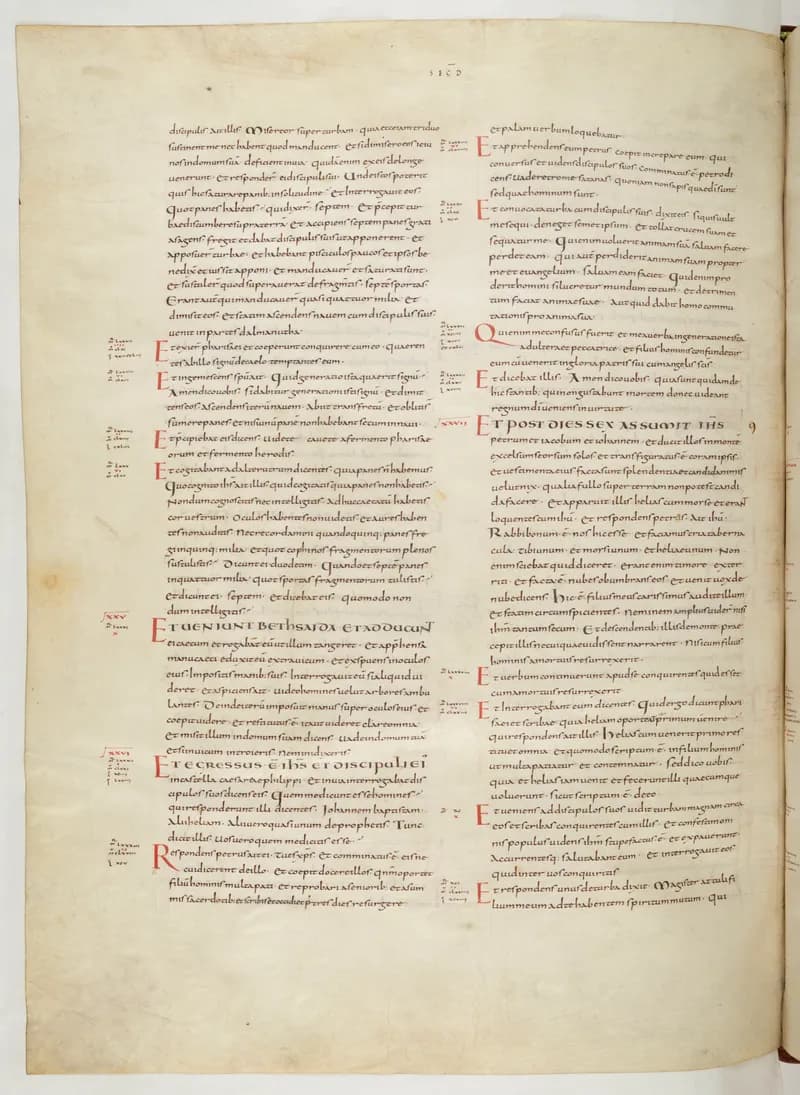 SECD
discipulis Ait illis Misereor super turbam · quia ecce iam triduo
sustinent me nec habent quod manducent · Et si dimisero eos ieiu
nos in domum suā deficient in uia · quidā enim ex eis de longe
uenerunt · Et responder ei discipuli sui · Unde istos poterit
quis hic saturare panib; in solitudine · Et Interrogauit eos ·
Quot panes habetis · qui dixer septem · Et p̄cepit tur
bae discumbere supra terrā · Et accipiens septem panes grati
as agens fregit et dabat discipulis suis ut apponerent · Et
apposuer turbae · Et habebant pisciculos paucos et ipsos be
nedix̄ et iussit apponi · Et manducauer̄ et saturati sunt ·
Et sustuler̄ quod superauerat de fragm̄tis septē sportas ·
Erant aut̄ qui manducauer̄ quasi quattuor milia · Et
dimisit eos · Et statim ascendens nauem cum discipulis suis
uenit in partes dalmanutha
Et exier̄ pharisaei et coeperunt conquirere cum eo · quaeren
tes ab illo signū de caelo temptantes eum ·
Et ingemescens sp̄u ait · Quid generatio ista quaerit signū
Amen dico uobis si dabitur generationi isti signū · Et dimit
tens eos ascendens iterū nauem · Abiit trans fretū · Et obliti s̄
sumere panes et nisi unū panē non habebant secum in naui ·
Et p̄cipiebat eis dicens · Uidete cauete a fermento pharisae
orum et fermento herodis
Et cogitabant ad alterutrum dicentes quia panes n̄ habemus
Quo cognito ih̄s ait illis quid cogitatis quia panes non habetis ·
Nondum cognoscitis nec intellegitis Adhuc caecatū habetis
cor uestrum · Oculos habentes non uidetis et aures haben
tes non auditis · Nec recordamini quando quinq; panes fre
gi in quinq; milia · et quot cophinos fragmentorum plenos
sustulistis · Dicunt ei duodecim · Quando et septē panes
in quattuor milia quot sportas fragmentorum tulistis ·
Et dicunt ei septem · Et dicebat eis · quomodo non
dum intellegitis ·
XXV
ET UENIUNT BETHSAIDA ET ADDUCUNT
ei caecum et rogabāt eū ut illum tangeret · Et app̄hensa
manu caeci eduxit eū extra uicum · Et exspuens in oculos
eius Impositis manib; suis Interrogauit eū si aliquid ui
deret · Et aspiciens ait · Uideo homines uelut arbores ambu
lantes · Deinde iterū imposuit manus super oculos eius et
coepit uidere · Et restitutus ē ita ut uideret clare omnia ·
Et misit illum in domum suam dicens · Uade in domum tuā
et si in uicum introieris · Nemini dixeris
XXVI
ET EGRESSUS Ē IH̄S ET DISCIPULI EI
in castella caesareae philippi · Et in uia interrogabat dis
cipulos suos dicens eis · Quem me dicunt esse homines ·
qui responderunt illi dicentes · Iohannem baptistam ·
Alii heliam · Alii uero quasi unum de prophetis · Tunc
dicit illis · Uos uero quem me dicitis esse ·
Respondens petrus ait ei · Tu es xp̄s · Et comminatus ē eis ne
cui dicerent de illo · Et coepit docere illos qn̄m oportet
filiū hominis multa pati · Et reprobari a seniorib; et a sum
mis sacerdotib; et scribis et occidi et p tres dies resurgere
et palam uerbum loquebatur ·
Et apprehendens eum petrus coepit increpare eum · qui
conuersus et uidens discipulos suos comminatus ē petro di
cens Uade retro me satanas quoniam non sapis quae dī sunt
sed quae hominum sunt ·
Et conuocata turba cum discipulis suis · dixit eis Si quis uult
me sequi · deneget semet ipsum · Et tollat crucem suam et
sequatur me · Qui enim uoluerit animam suā saluam facere
perdet eam · qui aut̄ perdiderit animam suam propter
me et euangelium · saluam eam faciet · Quid enim pro
derit homini si lucretur mundum totum · Et detrimen
tum faciat animae suae · Aut quid dabit homo commu
tationis pro anima sua ·
Qui enim me confusus fuerit et mea uerba in generatione ista
adultera et peccatrice · et filius hominis confundetur
eum cū uenerit in gloria patris sui cum angelis sc̄is
Et dicebat illis · Amen dico uobis · quia sunt quidam de
hic stantib; qui non gustabunt mortem donec uideant
regnum dī ueniens in uirtute ·
XXVII
ET POST DIES SEX ASSUMIT IH̄S
petrum et iacobum et iohannem · Et ducit illos in monte
excelsum seorsum solos et transfiguratus ē coram ipsis ·
Et uestimenta eius facta sunt splendentia et candida nimis
uelut nix · qualia fullo super terram non potest candi
da facere · Et apparuit illis helias cum mose et erant
loquentes cum ihū · Et respondens petrus · Ait ihū ·
Rabbi bonum ē nos hic esse · Et faciamus tria taberna
cula · tibi unum · Et mosi unum · et heliae unum · Non
enim sciebat quid diceret · Erant enim timore exter
riti · Et facta ē nubes obumbrans eos · Et uenit uox de
nube dicens · Hic ē filius meus carissimus audite illum
Et statim circumspicientes · Neminem amplius uider̄ nisi
ihm̄ tantum secum · Et descendentib; illis de monte · prae
cepit illis ne cui quae uidissent narrarent · Nisi cum filius
hominis a mortuis resurrexerit ·
Et uerbum continuerunt apud se conquirentes quid esset
cum a mortuis resurrexerit
Et Interrogabant eum dicentes · Quid ergo dicunt phari
saei et scribae quia heliam oportet primum uenire ·
qui respondens ait illis · Helias cum uenerit primo res
tituet omnia · Et quomodo scriptum ē · in filium hominis
ut multa patiatur · Et contemnatur · Sed dico uobis ·
quia et helias iam uenit · et fecerunt illi quaecumque
uoluerunt · sicut scriptum ē · de eo ·
Et ueniens ad discipulos suos uidit turbam magnam circa
eos et scribas conquirentes cum illis · Et confestim om
nis populus uidens ihm̄ stupefactus ē · et expauerunt ·
Accurrentesq; salutabant eum · Et interrogauit eos
quid inter uos conquiritis
Et respondens unus de turba dixit · Magister attuli fi
lium meum ad te habentem spiritum mutum · Qui